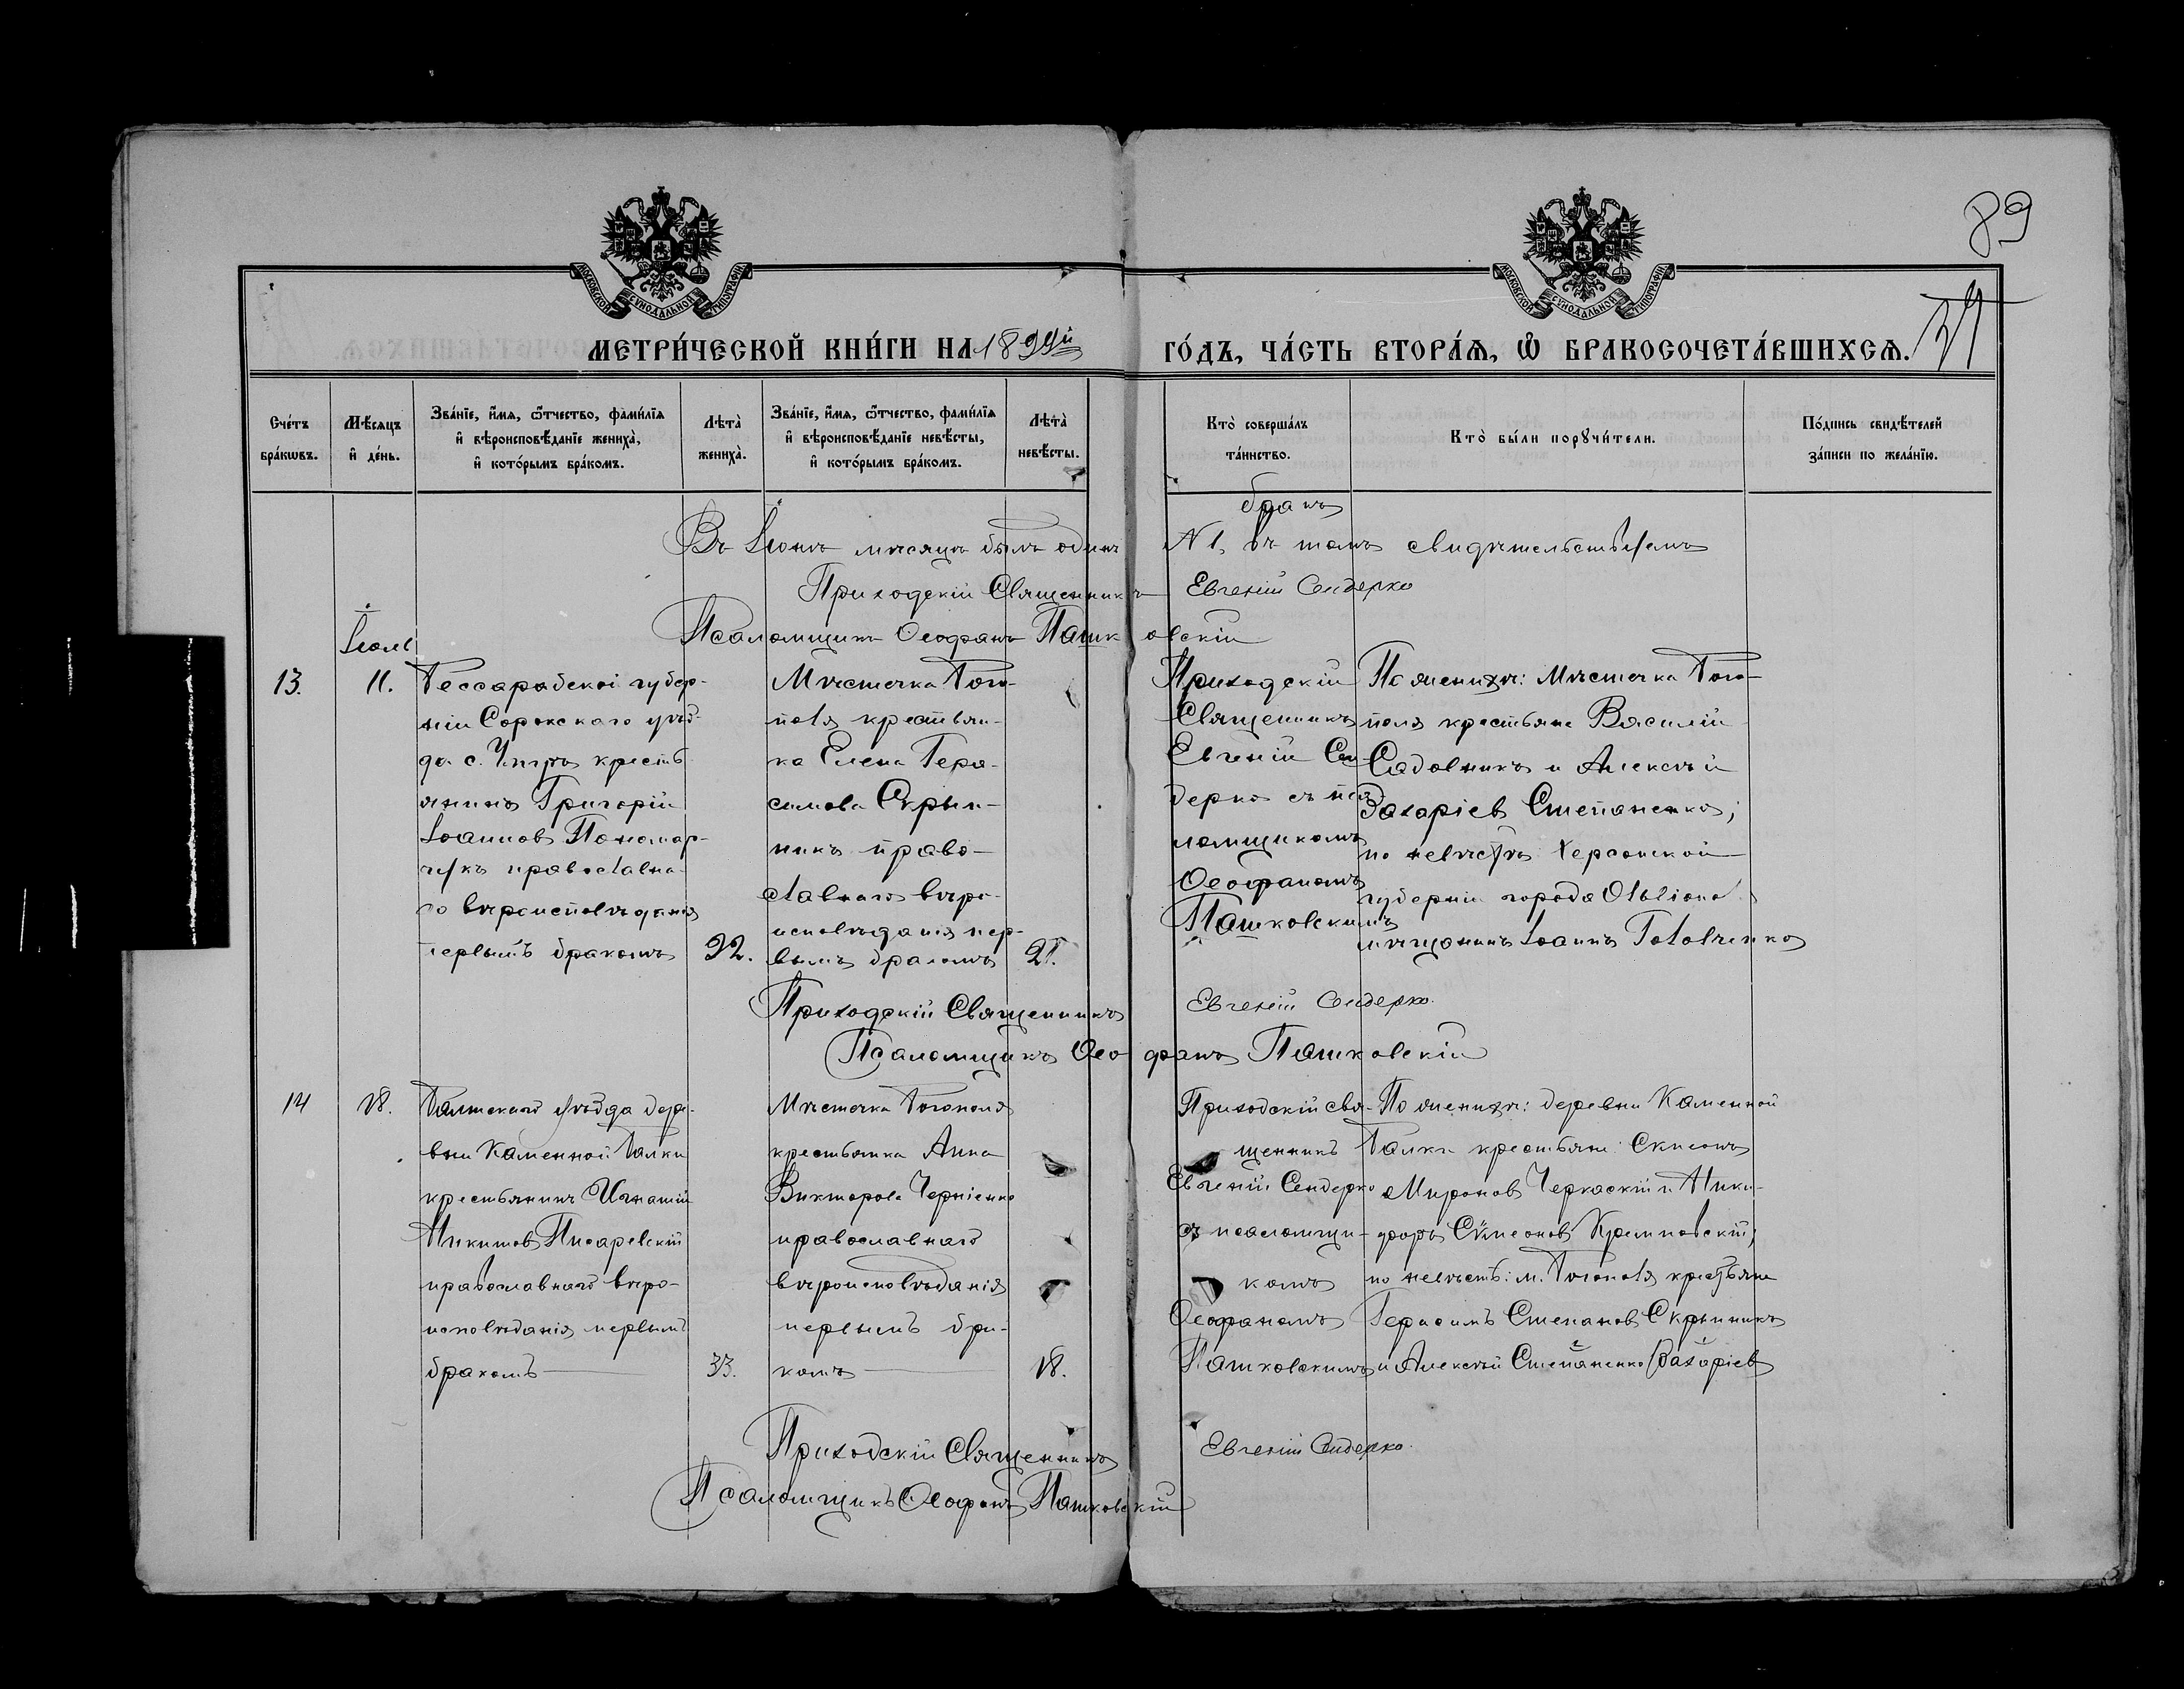 89
МОСКОВСКОЙ СѴНОДАЛЬНОЙ ТИПОГРАФІИ
МОСКОВСКОЙ СѴНОДАЛЬНОЙ ТИПОГРАФІИ
МЕТРИ́ЧЕСКОЙ КНИ́ГИ НА 1899й ГО́ДЪ, ЧА́СТЬ ВТОРА́Я, Ѡ҆ БРАКОСОЧЕТА́ВШИХСЯ.
Сче́тъ
бра́кωвъ.
Мѣ́сяцъ
и҆ де́нь.
Зва́нїе, и҆́мя, ѻ҆́тчество, фами́лїя
и҆ вѣроисповѣ́данїе жениха̀,
и҆ кото́рымъ бра́комъ.
Лѣта̀
жениха̀.
Зва́нїе, и҆́мя, ѻ҆́тчество, фами́лїя
и҆ вѣроисповѣ́данїе невѣ́сты,
и҆ кото́рымъ бра́комъ.
Лѣта̀
невѣ́сты.
Кто̀ соверша́лъ
та́инство.
Кто̀ бы́ли порꙋчи́тели.
По́дпись свидѣ́телей
за́писи по жела́нїю.
Въ Іюнѣ мѣсяцѣ былъ одинъ бракъ
№ 1, въ томъ свидѣтельствуемъ
Приходскій Священникъ Евгеній Сендерко
Псаломщикъ Ѳеофанъ Пашковскій
Іюль
13.
11.
Бессарабской губер-
ніи Сорокскаго уѣз-
да с. кресть
янинъ Григорій
Іоанновъ Пономар-
чукъ православна-
го вѣроисповѣданія
первымъ бракомъ
22.
Мѣстечка Бого-
поля крестьян-
ка Елена Гера-
симова Скрын-
никъ право-
славнаго вѣро-
исповѣданія пер-
вымъ бракомъ
21.
Приходскій
Священникъ
Евгеній Сен-
дерко съ пса-
ломщикомъ
Ѳеофаномъ
Пашковскимъ
По женихѣ: Мѣстечка Бого-
поля крестьяне Василій
Садовникъ и Алексѣй
Захаріевъ Степаненко;
по невѣстѣ Херсонской
губерніи города Ольвіополя
мѣщанинъ Іоаннъ Головченко
Приходскій Священникъ Евгеній Сендерко.
Псаломщикъ Ѳеофанъ Пашковскій
14
18.
Балтскаго уѣзда дере-
вни Каменной Балки
крестьянинъ Игнатій
Никитовъ Писаревскій
православнаго вѣро-
исповѣданія первымъ
бракомъ
33.
Мѣстечка Богополя
крестьянка Анна
Викторова Черніенко
православнаго
вѣроисповѣданія
первымъ бра-
комъ
18.
Приходскій свя-
щенникъ
Евгеній Сендерко
съ псаломщи-
комъ
Ѳеофаномъ
Пашковскимъ
По женихѣ: деревни Каменной
Балки крестьяне: Симеонъ
Мироновъ Черкаскій и Ники-
форъ Симеоновъ
по невѣстѣ: м. Богополя крестьяне
Герасимъ Степановъ Скрынникъ
и Алексѣй Степаненко Захаріевъ
Приходскій Священникъ Евгеній Сендерко.
Псаломщикъ Ѳеофанъ Пашковскій